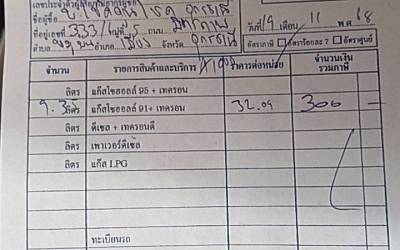 เลขประจำตัวผู้เสียภูมิอากร(ผู้ซื้อ)
ชื่อผู้ซื้อ
วันที่ 9 เดือน 11 พ.ศ 68
ที่อยู่เลขที่ 333/ หมู่ที่ 5 ถนน มิตรภาพ
ตำบล อำเภอ เมือง จังหวัด อุดรธานี
อัตราภาษี ร้อยละ 7 อัตราศูนย์
จำนวน รายการสินค้าและบริการ ราคาต่อหน่วย จำนวนเงิน รวมภาษี
ลิตร แก๊สโซฮอลล์ 95 + เทครอน
9.35 ลิตร แก๊สโซฮอลล์ 91+ เทครอน 32.09 300 —
ลิตร ดีเซล + เทครอนดี
ลิตร เพาเวอร์ดีเซ้ล
ลิตร แก๊ส LPG
ทะเบียนรถ